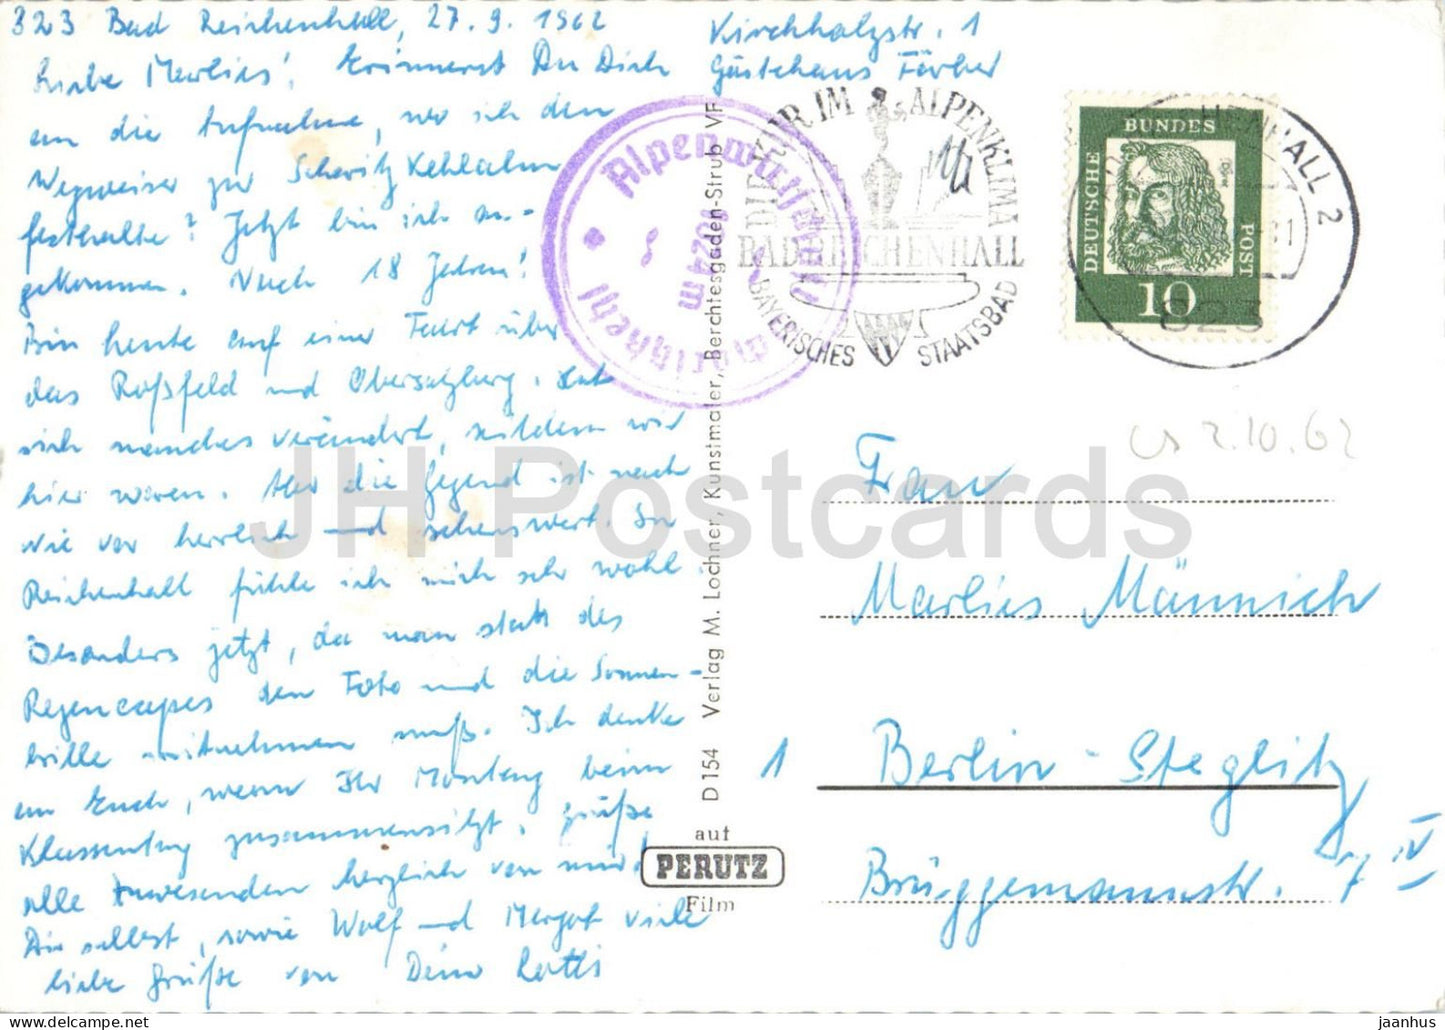 823 Bad Reichenhall, 27.9.1962
Kirchholzstr. 1
Gästehaus Färber
Liebe Marlies! Erinnerst Du Dich
an die Aufnahme, wo ich den
Wegweiser zur Scharitzkehlalm
festhalte? Jetzt bin ich an-
gekommen. Nach 18 Jahren!
Bin heute auf einer Fahrt über
das Roßfeld und Obersalzberg. Hat
sich manches verändert, seitdem wir
hier waren. Aber die Gegend ist nach
wie vor herrlich und sehenswert. In
Reichenhall fühle ich mich sehr wohl.
Besonders jetzt, da man statt des
Regencapes den Foto und die Sonnen-
brille mitnehmen muß. Ich denke
an Euch, wenn Ihr Montag beim
Klassentag zusammensitzt. Grüße
alle Anwesenden herzlich von mir!
Dir selbst, sowie Wolf und Margot viele
liebe Grüße von Deiner
Alpenwirtschaft
1024 m
DIR IM ALPENKLIMA
BAD REICHENHALL
BAYERISCHES STAATSBAD
DEUTSCHE BUNDES POST
10
823
2
2.10.62
Frau
Marlies Männich
1 Berlin-Steglitz
Brüggemannstr. 7 IV
D 154 Verlag M. Lochner, Kunstmaler, Berchtesgaden-Strub VF
auf
PERUTZ
Film
JH Postcards
jaanhus — https://www.jhpostcards.com